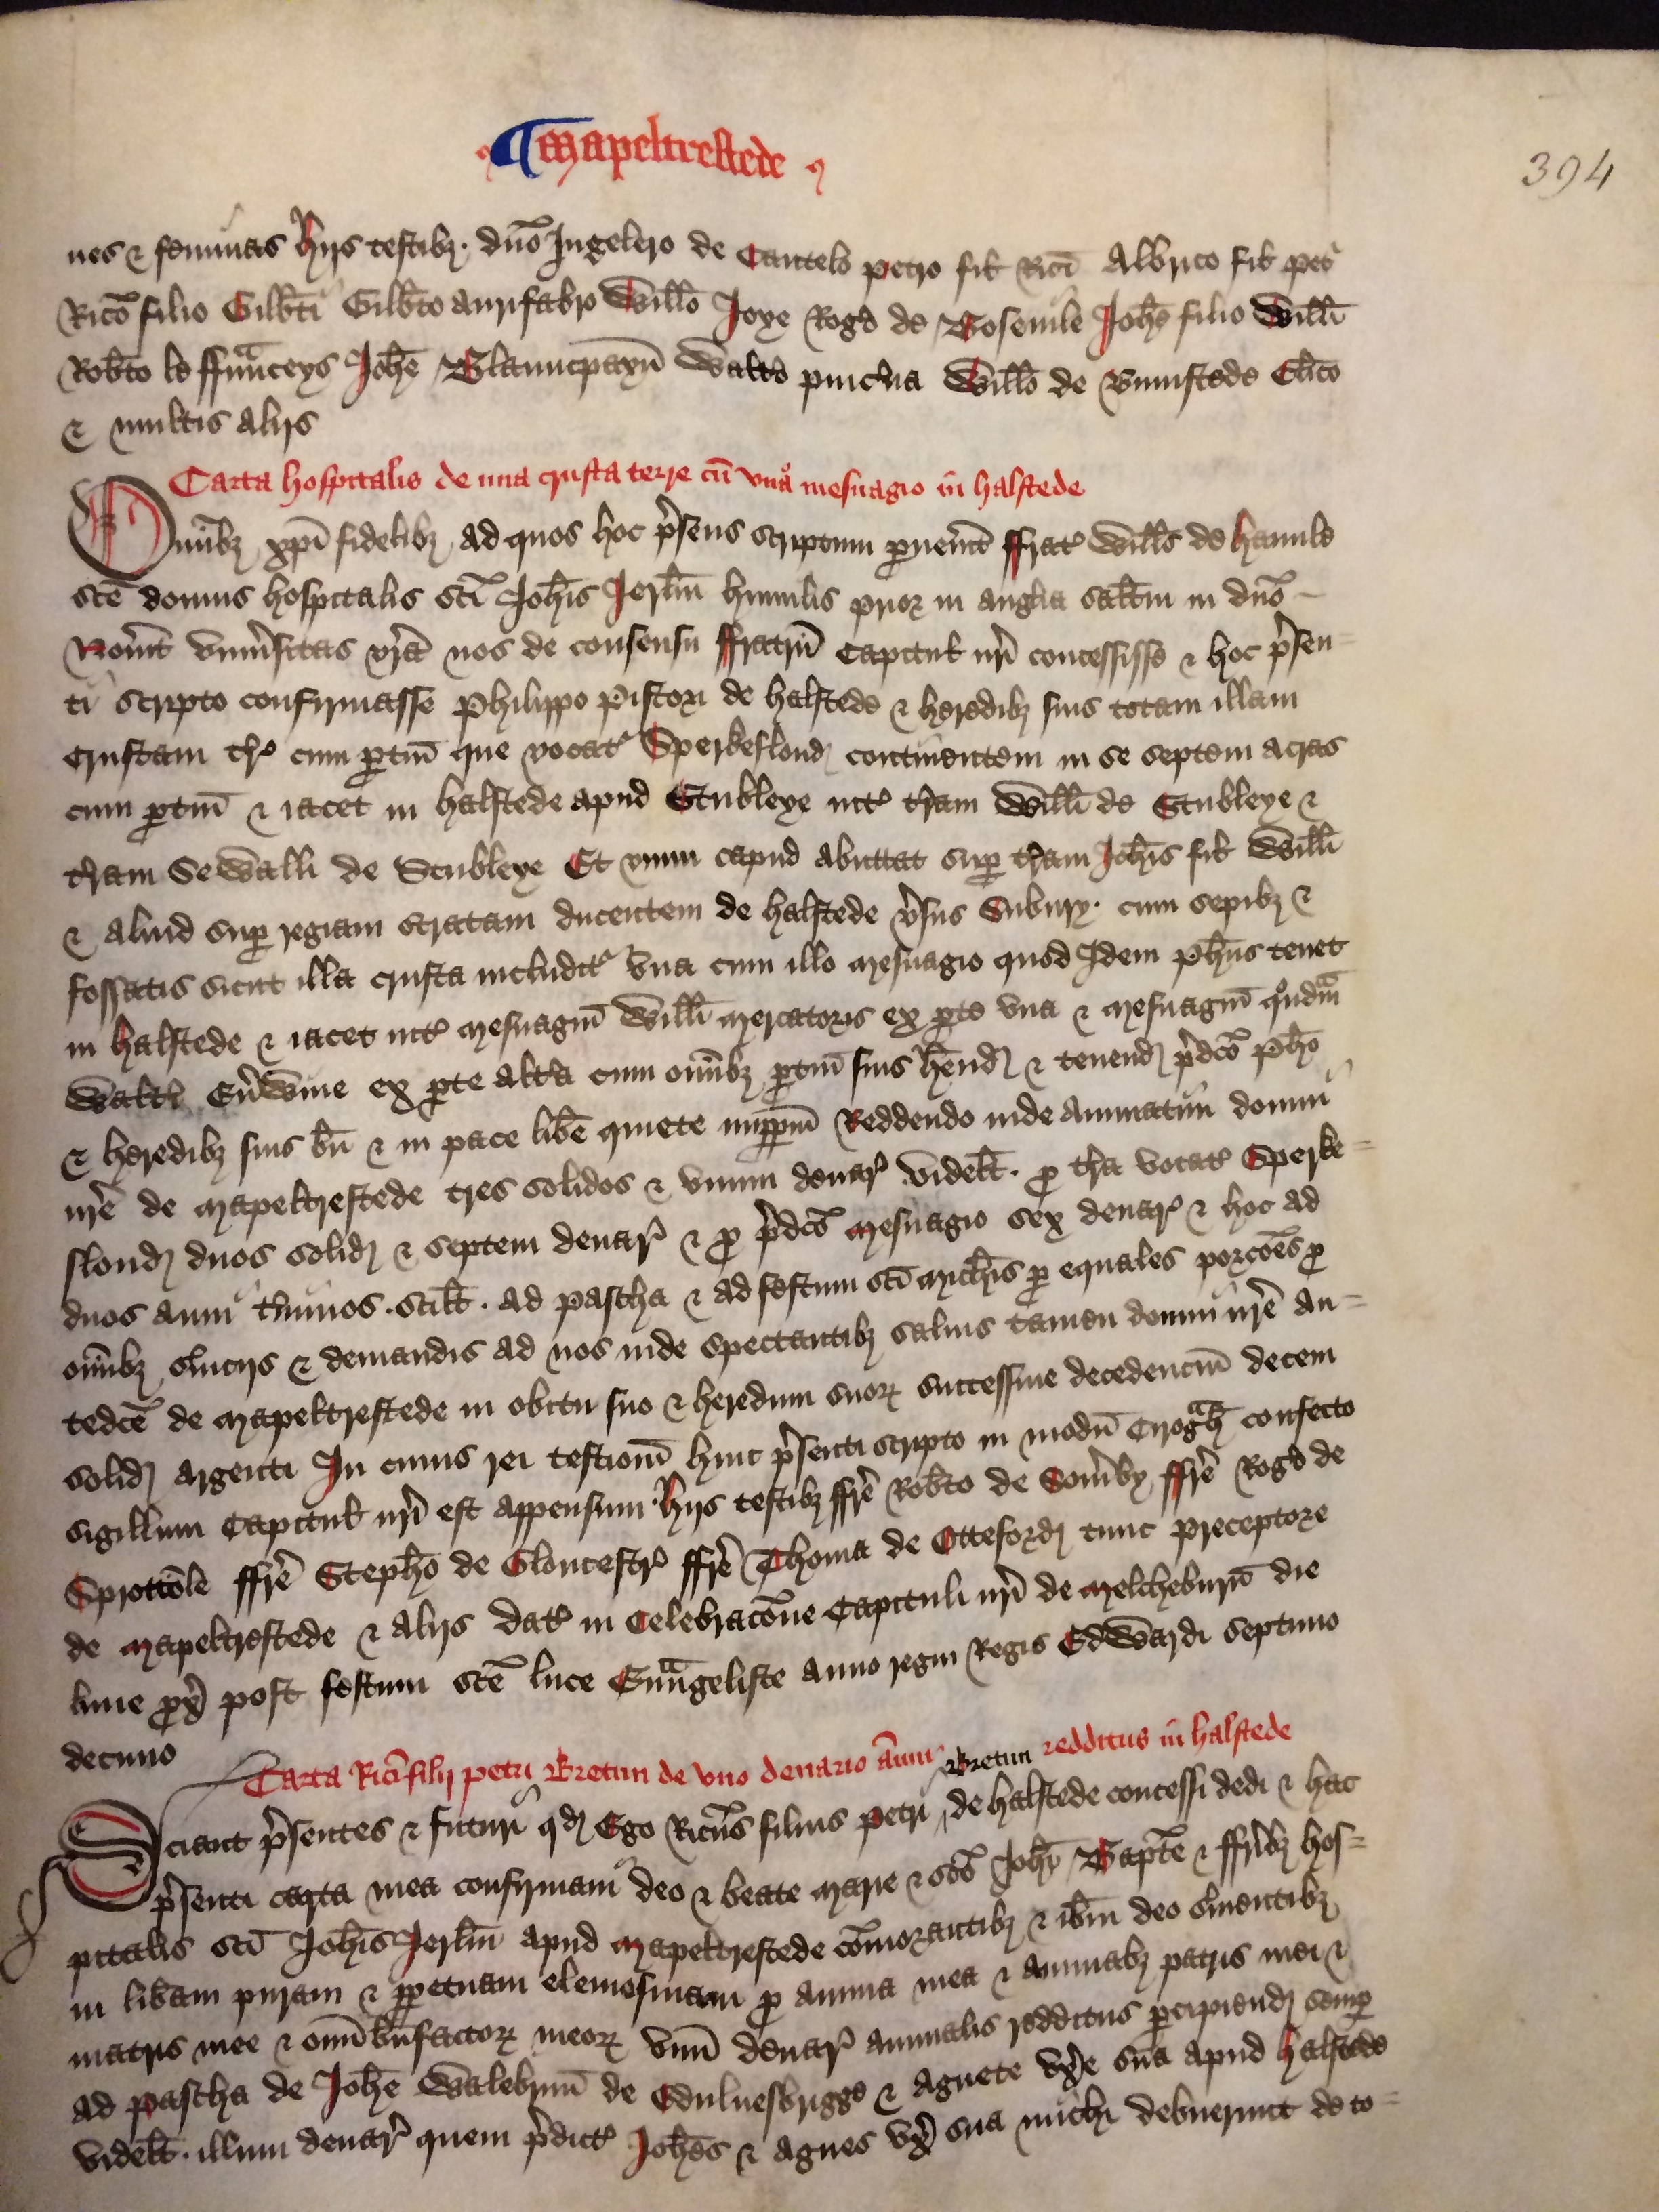 ¶ Mapeltrestede
394
nes & feminas hijs testibȝ. dn̄o Ingelero de Cantelo petro fil Ric̄i Albrico fil pet'
Ric̄o filio Gilb̄ti Gilb̄to aurifabro Will̄o Joye Roḡo de Bosevile Joh̄e filio Will̄i
Rob̄to le ffraunceys Joh̄e Blauncpayn̄ Walt'o puicha Will̄o de Bumstede Cl̄ico
& multis alijs
Carta hospitalis de una crusta terre cū vno mesuagio in halstede
Omībȝ xp̄i fidelibȝ ad quos hoc p'sens scriptum puen'it ffrat' Will̄s de hanile
sc̄e domus hospitalis sc̄i Joh̄is Jerl̄m humilis prior in anglia sal̄tm in dn̄o
Nou'it vniu'sitas vr̄a nos de consensu ffratrū Capitul nr̄i concessisse & hoc p'sen-
ti scripto confirmasse Philippo Pistori de halstede & heredibȝ suis totam illam
crustam t're cum ptin̄ que vocat' Sperkeslond continentem in se septem acras
cum ptin̄ & iacet in halstede apud Stubleye int' t'ram Will̄i de Stubleye &
t'ram Sewalli de Stubleye Et vnum capud abuttat sup t'ram Joh̄is fil Will̄i
& aliud sup regiam stratam ducentem de halstede v'sus Subury. cum sepibȝ &
fossatis sicut illa crusta includit' vna cum illo mesuagio quod Idem Ph̄us tenet
in halstede & iacet int' mesuagiū Will̄i mercatoris ex pte vna & mesuagiū quondā
Walt'i En'wine ex pte alt'a cum omībȝ ptin̄ suis h̄end & tenend p'dc̄o Ph̄o
& heredibȝ suis bn̄ & in pace lib̄e quiete inppm̄ Reddendo inde annuatim domui
nr̄e de mapeltrestede tres solidos & vnum denar' videl̄t. p t'ra vocat' Sperke-
slond duos solid & septem denar' & p p'dc̄o mesuagio sex denar' & hoc ad
duos anni t'minos. scil̄t. ad pascha & ad festum sc̄i mich̄is p equales porcōes p
omībȝ s'uicijs & demandis ad nos inde spectantibȝ saluis tamen domui nr̄e an-
tedc̄e de mapeltrestede in obitu suo & heredum suorꝝ successiue decedenciū decem
solid argenti In cuius rei testimoniū huic p'senti scripto in modū Cirogͣh confecto
sigillum Capitul nr̄i est appensum. hijs testibȝ ffr̄e Rob̄to de Som'by ffr̄e Roḡo de
Sprottōle ffr̄e Steph̄o de Gloucestr' ffr̄e Thoma de Otteford tunc preceptore
de mapeltrestede & alijs dat' in Celebracōne Capituli nr̄i de melcheburn̄ die
lune px' post festum sc̄e luce Euͣngeliste anno regni Regis Edwardi septimo
decimo
Carta Ric̄i filij petri Bretun de vno denario ānui redditus in halstede
Bretun
Sciant p'sentes & futuri qd Ego Ric̄us filius petri de halstede concessi dedi & hac
p'senti carta mea confirmaui deo & beate marie & sc̄o Joh̄i Bapt̄e & ffr̄ibȝ hos-
pitalis sc̄i Joh̄is Jerl̄m apud mapeltrestede cōmorantibȝ & ib̄m deo s'uientibȝ
in lib̄am puram & ppetuam elemosinam p anima mea & animabȝ patris mei &
matris mee & omī bn̄factorꝝ meorꝝ vnū denar' annualis redditus pcipiend semp
ad pascha de Joh̄e Walebrun̄ de Eduluesbrigge & Agnete vx'e sua apud halstede
videl̄t. illum denar' quem p'dict' Joh̄es & agnes vx' sua michi debuerunt de to-